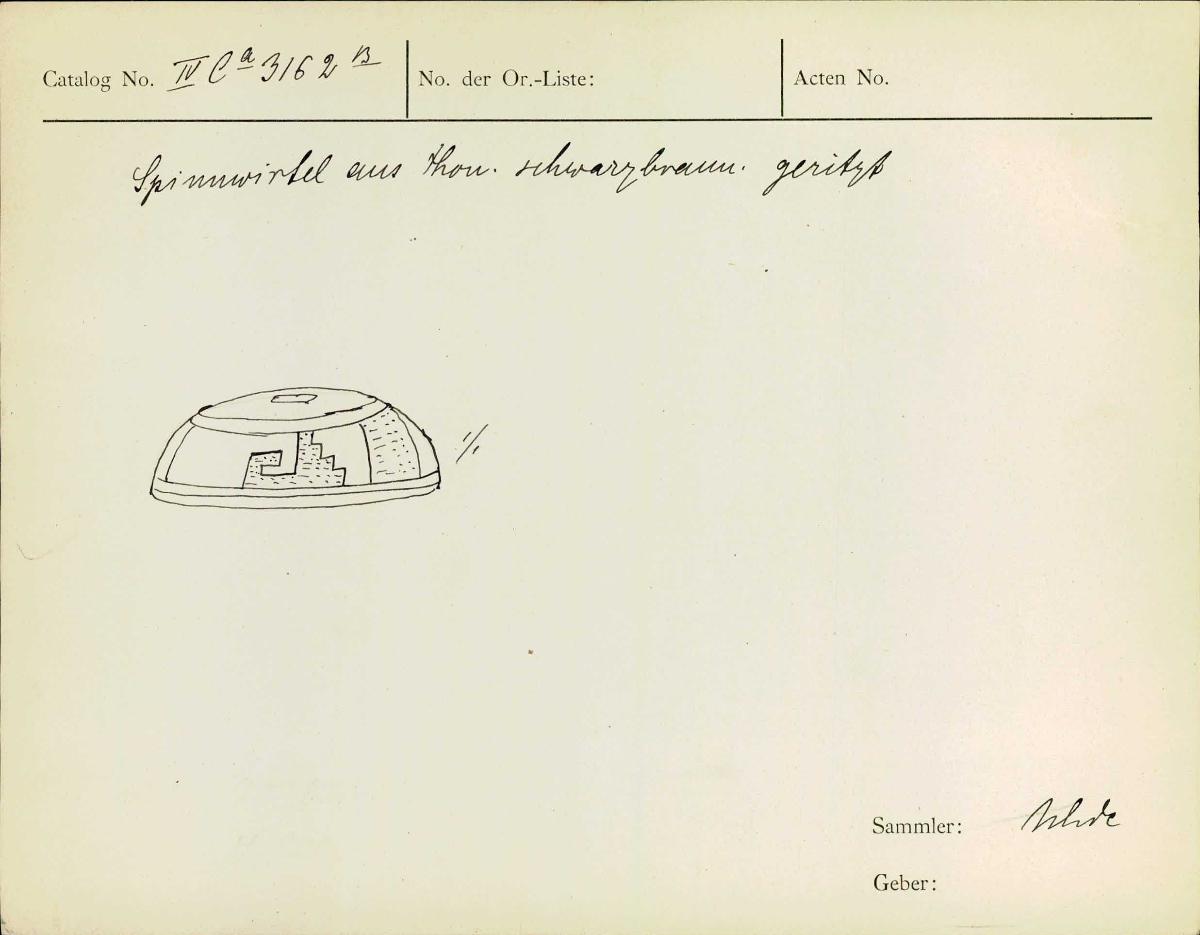 Catalog No. IV Ca 3162 B
No. der Or.-Liste:
Acten No.
Spinnwirtel aus Thon. schwarzbraun. geritzt
1/1
Sammler: Uhde
Geber: